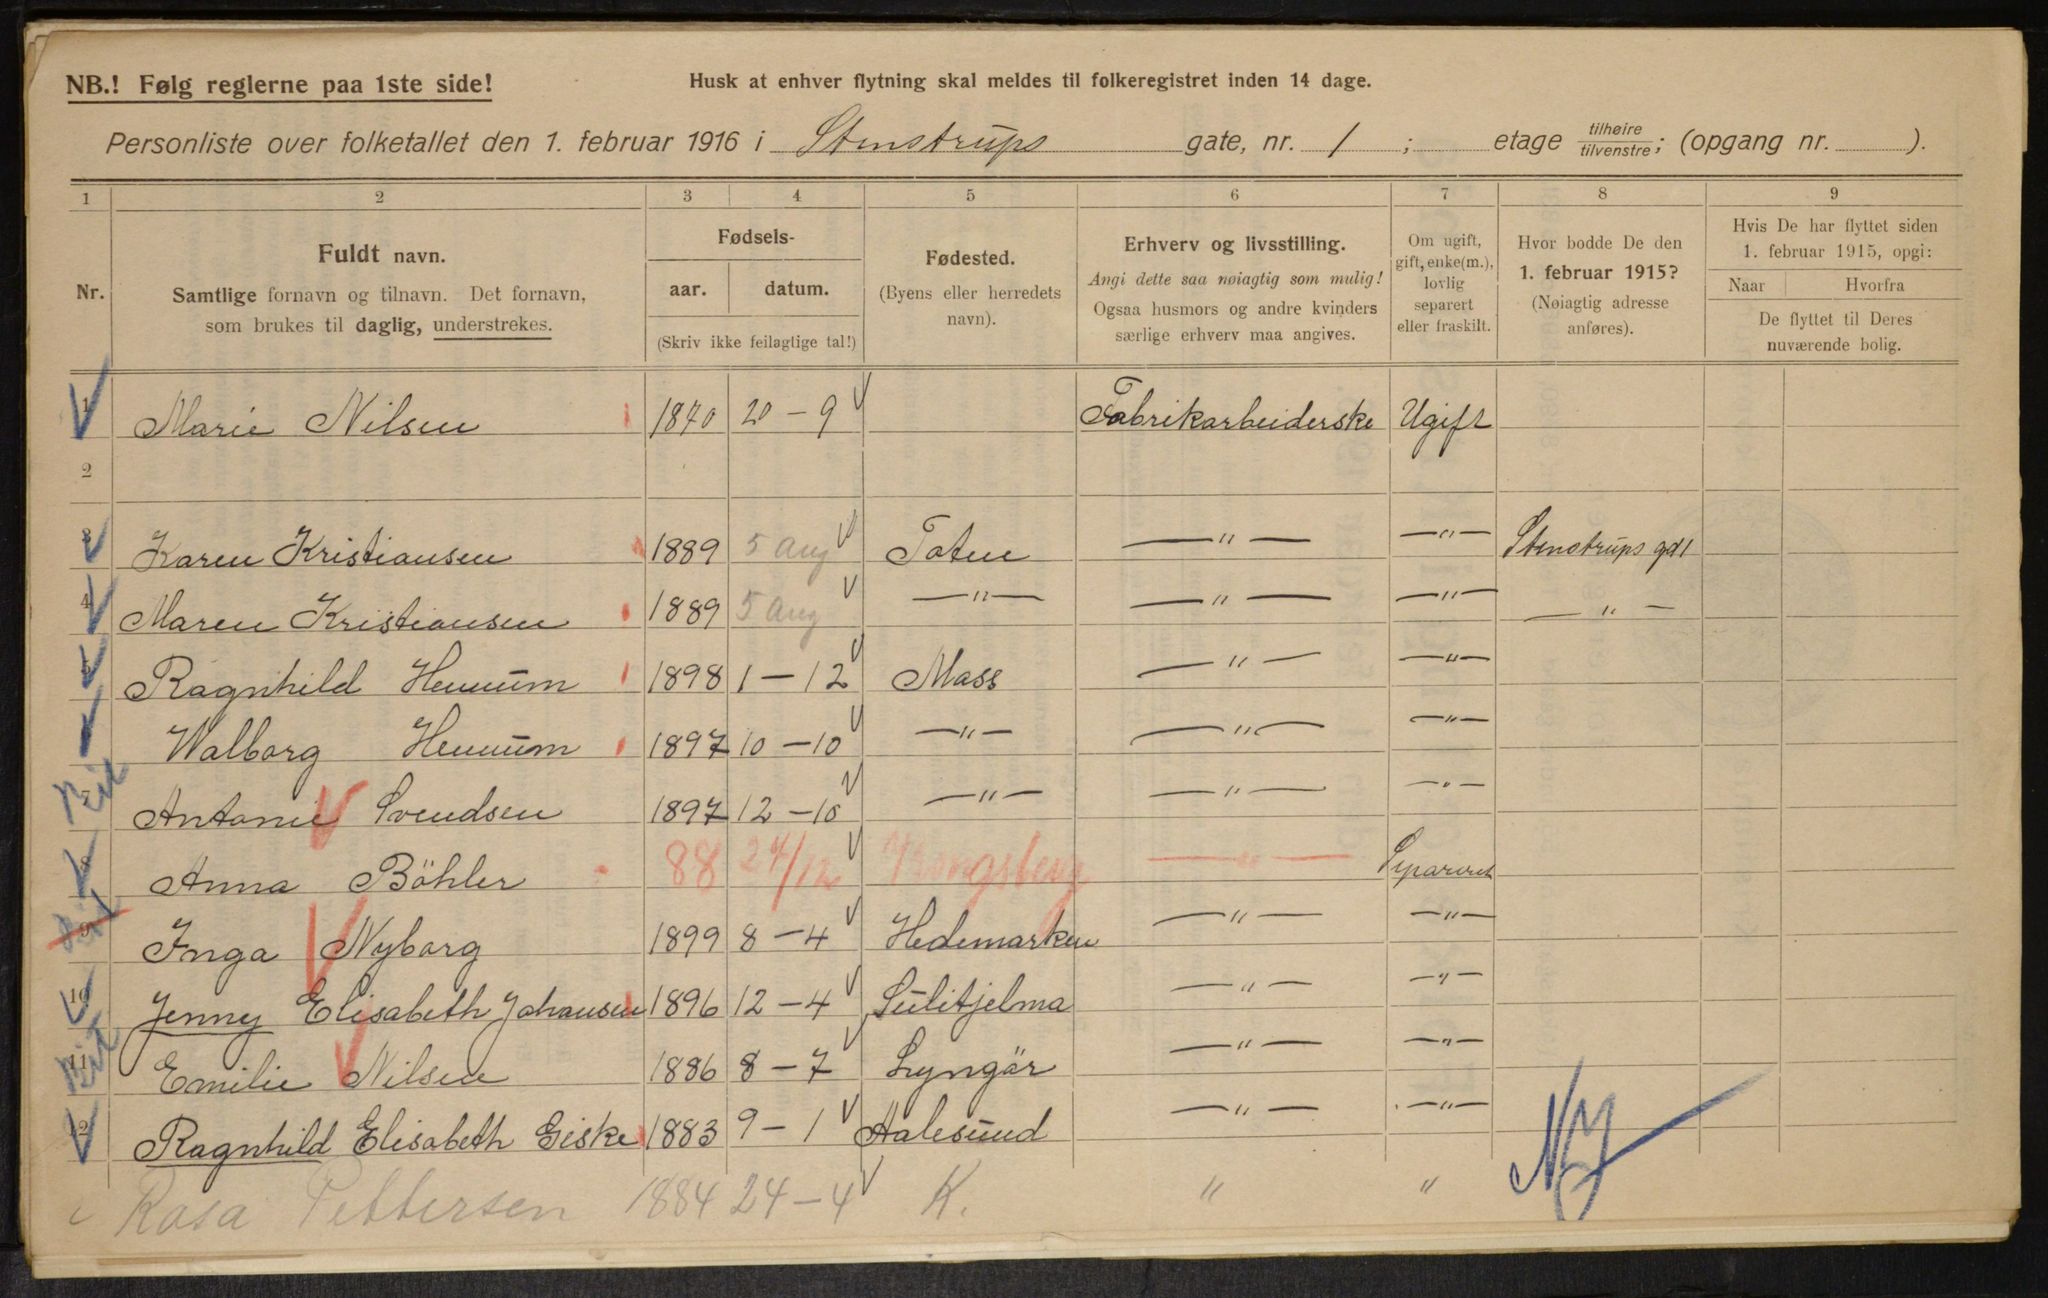 NB.! Følg reglerne paa 1ste side!
Husk at enhver flytning skal meldes til folkeregistret inden 14 dage.
Personliste over folketallet den 1. februar 1916 i Stenstrups gate, nr. 1 ; etage tilhøire tilvenstre ; (opgang nr. ).
1 2 3 4 5 6 7 8 9
Nr.
Fuldt navn.
Samtlige fornavn og tilnavn. Det fornavn,
som brukes til daglig, understrekes.
Fødsels-
aar. datum.
(Skriv ikke feilagtige tal!)
Fødested.
(Byens eller herredets
navn).
Erhverv og livsstilling.
Angi dette saa nøiagtig som mulig!
Ogsaa husmors og andre kvinders
særlige erhverv maa angives.
Om ugift,
gift, enke(m.),
lovlig
separert
eller fraskilt.
Hvor bodde De den
1. februar 1915?
(Nøiagtig adresse
anføres).
Hvis De har flyttet siden
1. februar 1915, opgi:
Naar Hvorfra
De flyttet til Deres
nuværende bolig.
1 Marie Nilsen 1870 20-9 Fabrikarbeiderske Ugift
2
3 Karen Kristiansen 1889 5 Aug Toten —"— —"— Stenstrups gd 1
4 Maren Kristiansen 1889 5 Aug —"— —"— —"— —"—
5 Ragnhild Hennum 1898 1-12 Mass —"— —"—
Walborg Hennum 1897 10-10 —"— —"— —"—
7 Antonie Svendsen 1897 12-10 —"— —"— —"—
8 Anna Böhler 88 24/12 Kongsberg —"— Separert
9 Inga Nyborg 1899 8-4 Hedemarken —"— —"—
10 Jenny Elisabeth Johansen 1896 12-4 Sulitjelma —"— —"—
11 Emilie Nilsen 1886 8-7 Lyngör —"— —"—
12 Ragnhild Elisabeth Giske 1883 9-1 Aalesund —"— —"—
Rosa Pettersen 1884 24-4 K. " "